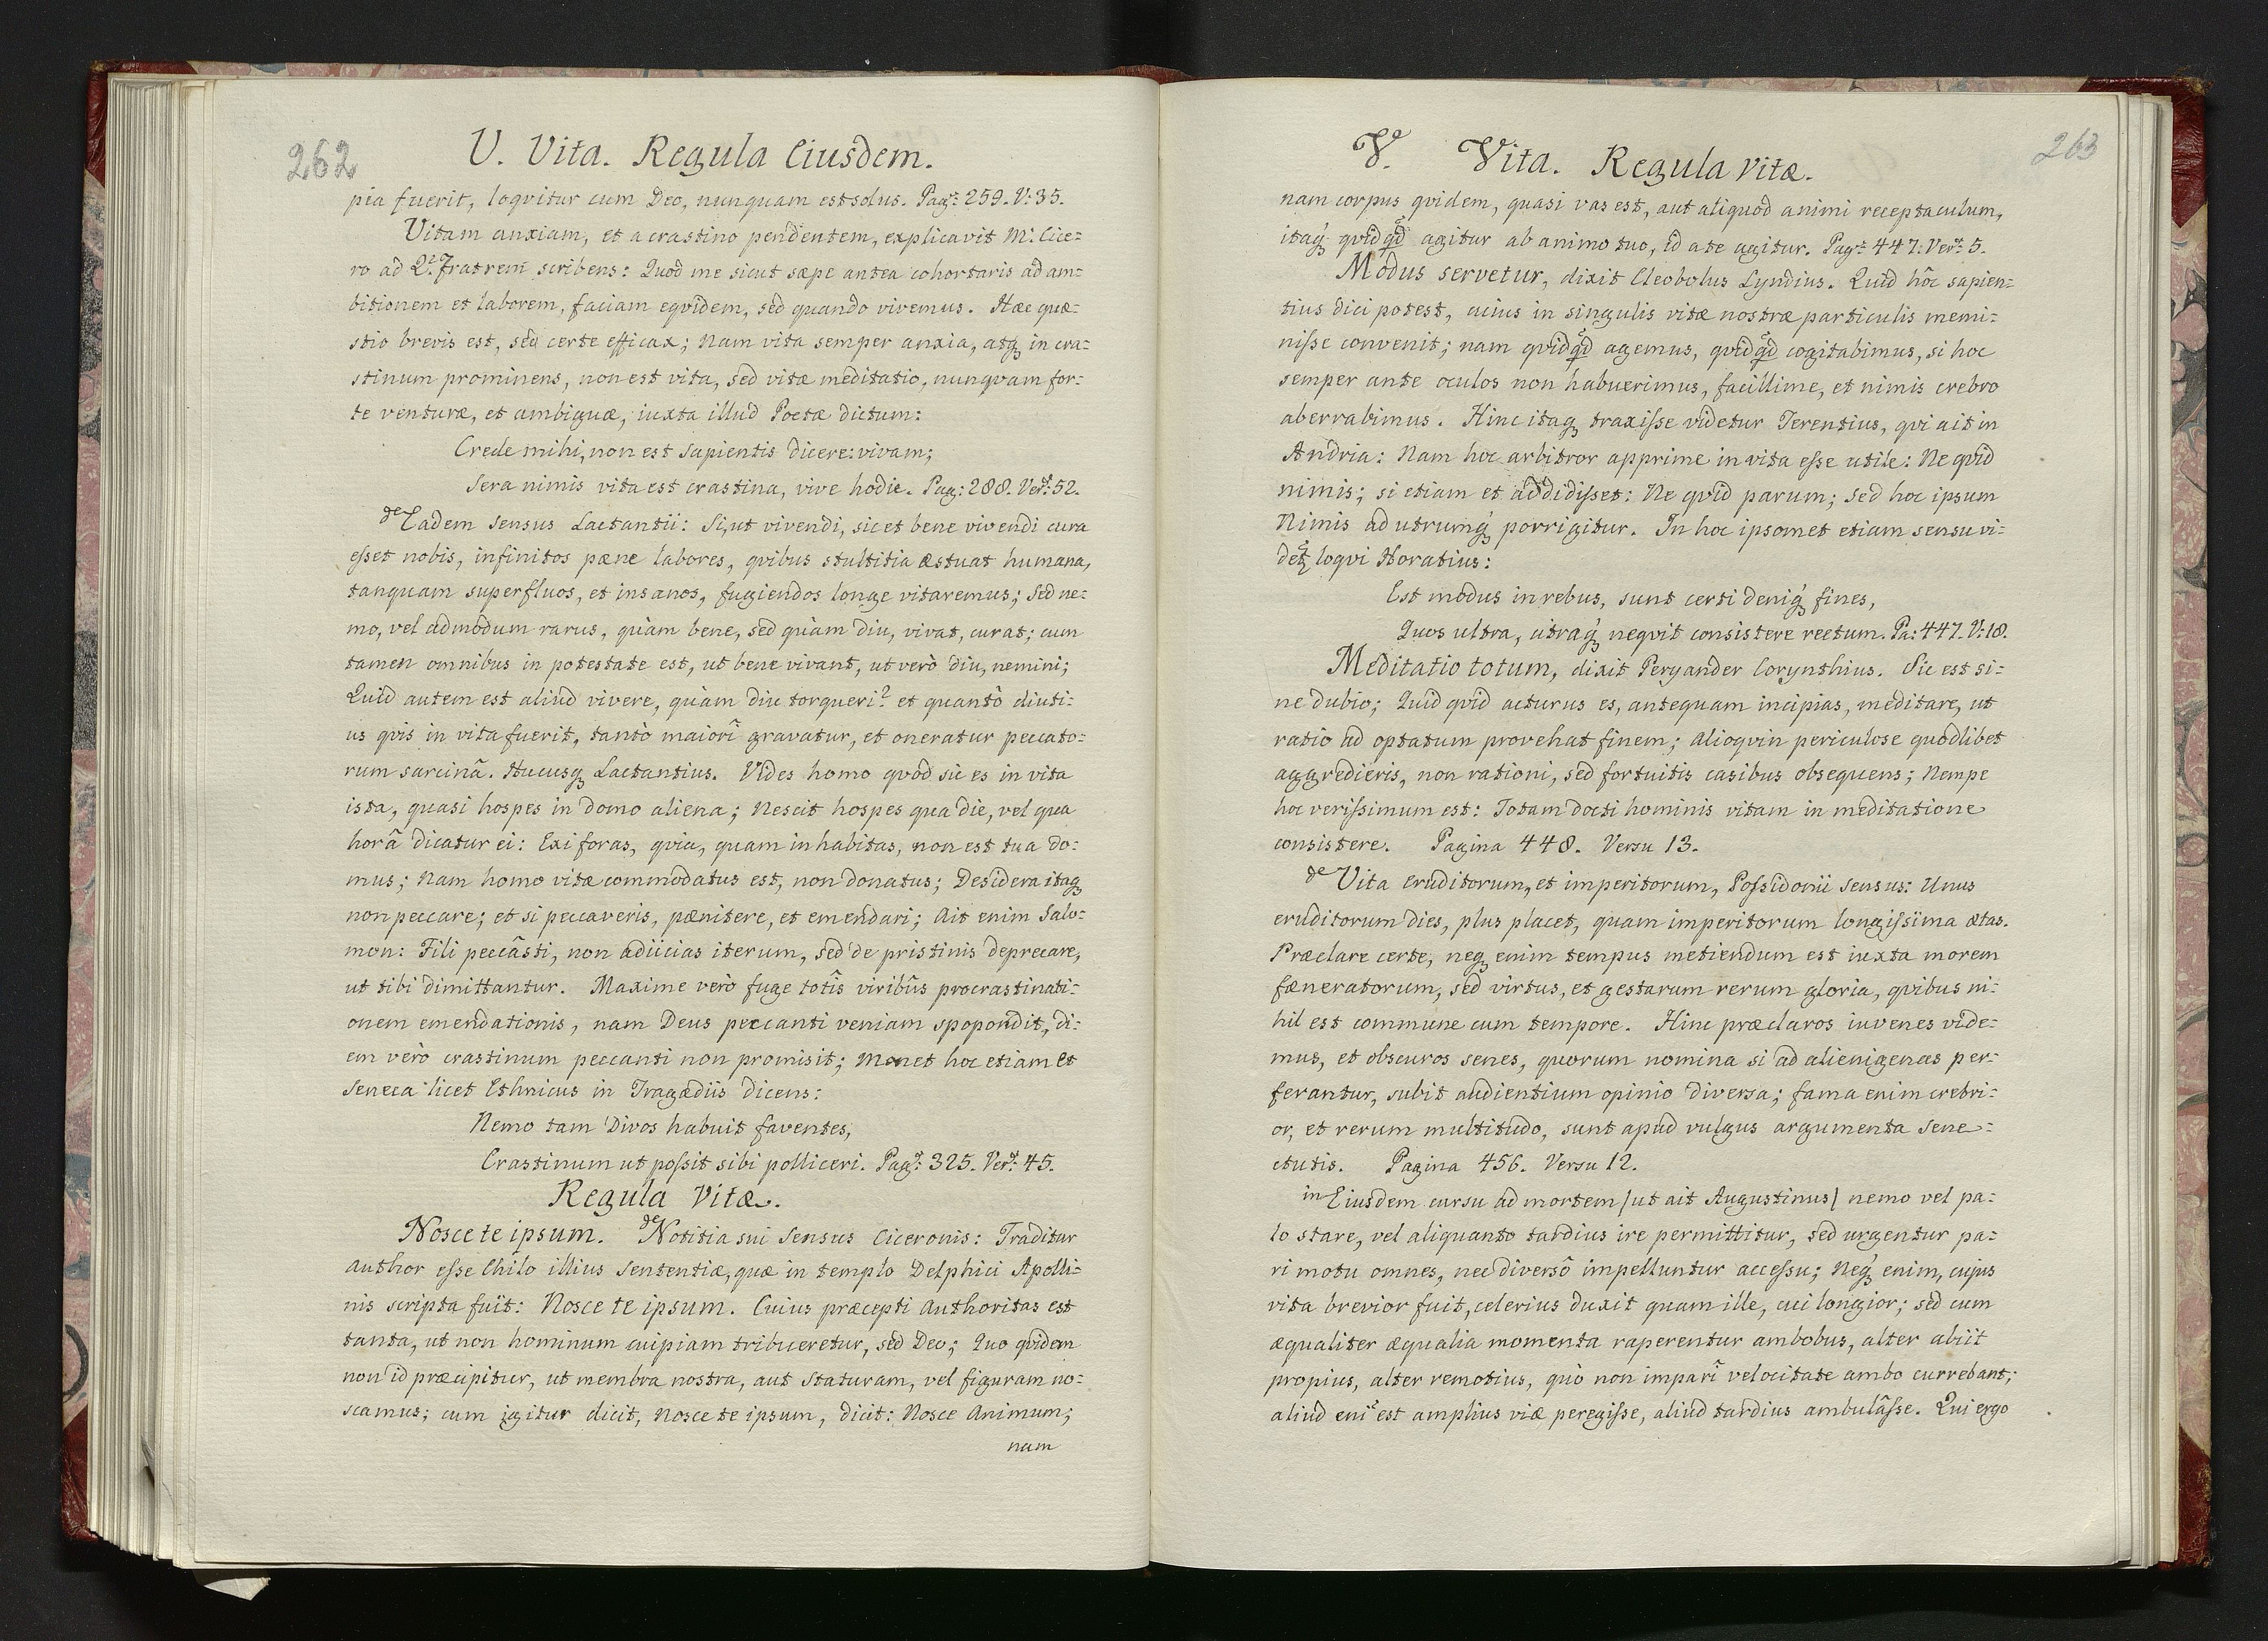 262
U. Vita. Regula Eiusdem.
pia fuerit, loqvitur cum Deo, nunquam est solus. Pagᵃ: 259. V: 35.
Vitam anxiam, et a crastino pendentem, explicavit M: Cice:
ro ad Q: Fratrem scribens: Quod me sicut sæpe antea cohortaris ad am:
bitionem et laborem, faciam eqvidem, sed quando vivemus. Hæc quæ:
stio brevis est, sed certe efficax; Nam vita semper anxia, atq́ in cra:
stinum prominens, non est vita, sed vitæ meditatio, nunqvam for:
te venturæ, et ambiguæ, iuxta illud Poetæ dictum:
Crede mihi, non est sapientis dicere: vivam;
Sera nimis vita est crastina, vive hodie. Pag: 288. Verˢ: 52.
de Eadem sensus Lactantii: Si, ut vivendi, sic et bene vivendi cura
esset nobis, infinitos pæne labores, qvibus stultitia æstuat humana,
tanquam superfluos, et insanos, fugiendos longe vitaremus; Sed ne:
mo, vel admodum rarus, quàm bene, sed quàm diu, vivat, curat; cum
tamen omnibus in potestate est, ut bene vivant, ut verò diu, nemini;
Quid autem est aliud vivere, quàm diu torqueri? et quantò diuti:
us qvis in vita fuerit, tantò maiorî gravatur, et oneratur peccato:
rum sarcinâ. Hucusq́ Lactantius. Vides homo qvod sic es in vita
ista, quasi hospes in domo aliena; Nescit hospes qua die, vel qua
horâ dicatur ei: Exi foras, qvia, quam inhabitas, non est tua do:
mus; Nam homo vitæ commodatus est, non donatus; Desidera itaq́
non peccare; et si peccaveris, pænitere, et emendari; Ait enim Salo:
mon: Fili peccâsti, non adiicias iterum, sed de pristinis deprecare,
ut tibi dimittantur. Maxime verò fuge totîs viribûs procrastinati:
onem emendationis, nam Deus peccanti veniam spopondit, di:
em verò crastinum peccanti non promisit; Monet hoc etiam et
Seneca licet Ethnicus in Tragædiis dicens:
Nemo tam Divos habuit faventes,
Crastinum ut possit sibi polliceri. Pagᵃ: 325. Verˢ: 45.
Regula Vitæ.
Nosce te ipsum. de Notitia sui Sensus Ciceronis: Traditur
author esse Chilo illius Sententiæ, quæ in templo Delphici Apolli:
nis scripta fuit: Nosce te ipsum. Cuius præcepti Authoritas est
tanta, ut non hominum cuipiam tribueretur, sed Deo; Quo qvidem
non id præcipitur, ut membra nostra, aut staturam, vel figuram no:
scamus; cum igitur dicit, Nosce te ipsum, dicit: Nosce Animum;
nam
263
V. Vita. Regula Vitæ.
nam corpus qvidem, quasi vas est, aut aliquod animi receptaculum,
itaq́ qvidq̃d agitur ab animo tuo, id a te agitur. Pagᵃ: 447: Verˢ: 5.
Modus servetur, dixit Cleobolus Lyndius. Quid hôc sapien:
tius dici potest, cuius in singulis vitæ nostræ particulis memi:
nisse convenit; nam qvidq̃d agemus, qvidq̃d cogitabimus, si hoc
semper ante oculos non habuerimus, facillime, et nimis crebro
aberrabimus. Hinc itaq́ traxisse videtur Terentius, qvi ait in
Andria: Nam hoc arbitror apprime in vita esse utile: Ne qvid
nimis; si etiam et addidisset: Ne qvid parum; sed hoc ipsum
Nimis ad utrumq́ porrigitur. In hoc ipsomet etiam sensu vi:
det̃ loqvi Horatius:
Est modus in rebus, sunt certi deniq́ fines,
Quos ultra, citraq́ neqvit consistere rectum. Pa: 447. V: 18.
Meditatio totum, dixit Peryander Corynthius. Sic est si:
ne dubio; Quid qvid acturus es, antequam incipias, meditare, ut
ratio ad optatum provehat finem; alioqvin periculose quodlibet
aggredieris, non rationi, sed fortuitis casibus obsequens; Nempe
hoc verissimum est: Totam docti hominis vitam in meditatione
consistere. Pagina 448. Versu 13.
de Vita Eruditorum, et imperitorum, Possidonii sensus: Unus
eruditorum dies, plus placet, quam imperitorum longissima ætas.
Præclare certe, neq́ enim tempus metiendum est iuxta morem
fæneratorum, sed virtus, et gestarum rerum gloria, qvibus ni:
hil est commune cum tempore. Hinc præclaros iuvenes vide:
mus, et obscuros senes, quorum nomina si ad alienigenas per:
ferantur, subit audientium opinio diversa; fama enim crebri:
or, et rerum multitudo, sunt apud vulgus argumenta Sene:
ctutis. Pagina 456. Versu 12.
in Eiusdem cursu ad mortem (ut ait Augustinus) nemo vel pa:
lo stare, vel aliquanto tardius ire permittitur, sed urgentur pa:
ri motu omnes, nec diversô impelluntur accessu; Neq́ enim, cujus
vita brevior fuit, celerius duxit quam ille, cui longior; sed cum
æqualiter æqualia momenta raperentur ambobus, alter abiit
propius, alter remotius, quò non imparî velocitate ambo currebant;
aliud enĩ est amplius viæ peregisse, aliud tardius ambulâsse. Qui ergo